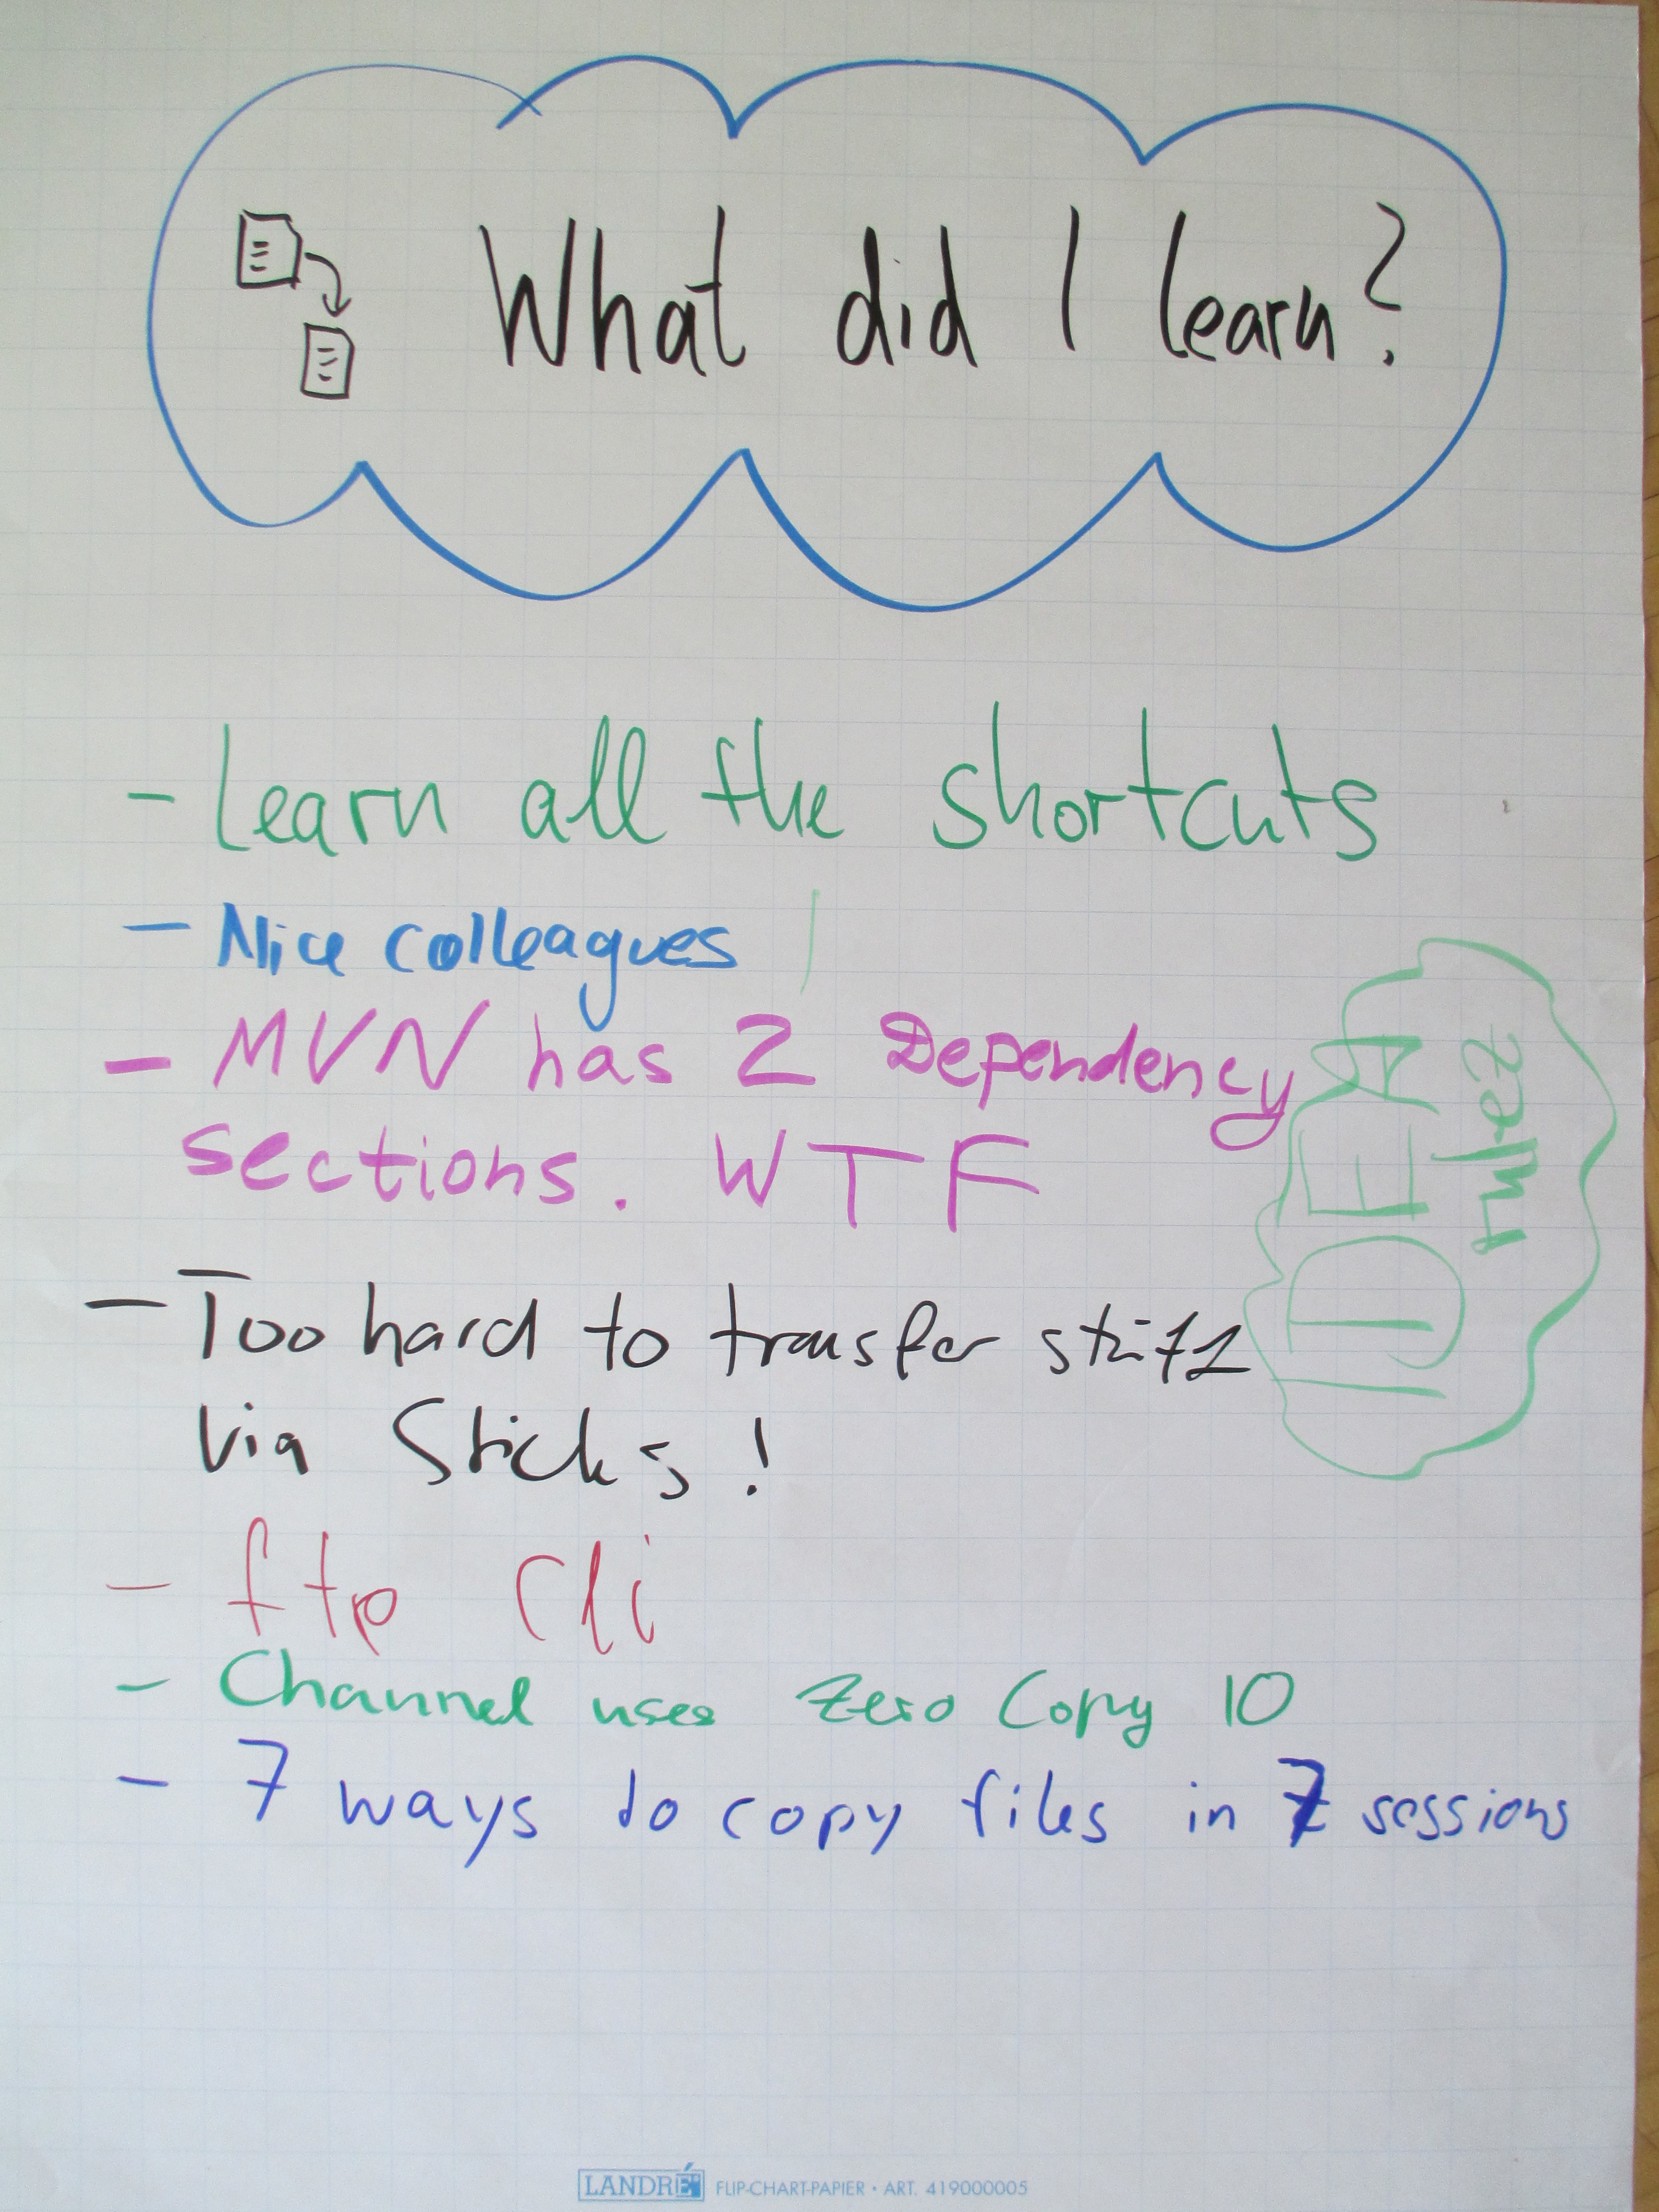 What did I learn?
- Learn all the shortcuts
- Nice colleagues
- MVN has 2 Dependency
sections. WTF
- Too hard to transfer
via Sticks!
- ftp cli
- Channel uses Zero Copy IO
- 7 ways to copy files in 7 sessions
IDEA
rulez
LANDRÉ FLIP-CHART-PAPIER • ART. 419000005